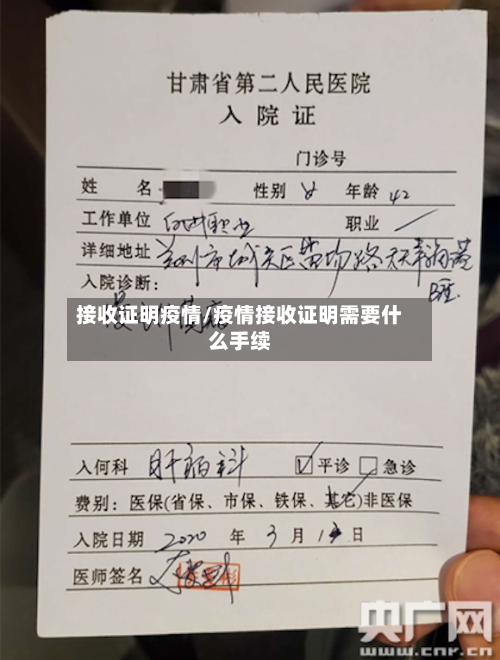 甘肃省第二人民医院
入院证
门诊号
姓 名 性别 女 年龄 42
工作单位 职业
详细地址 兰州市城关区苗圃路
入院诊断：
接收证明疫情/疫情接收证明需要什
么手续
入何科 肝病科 ☑平诊 ☐急诊
费别：医保(省保、市保、铁保、其它)非医保
入院日期 2020 年 3 月 日
医师签名
央广网
www.cnr.cn